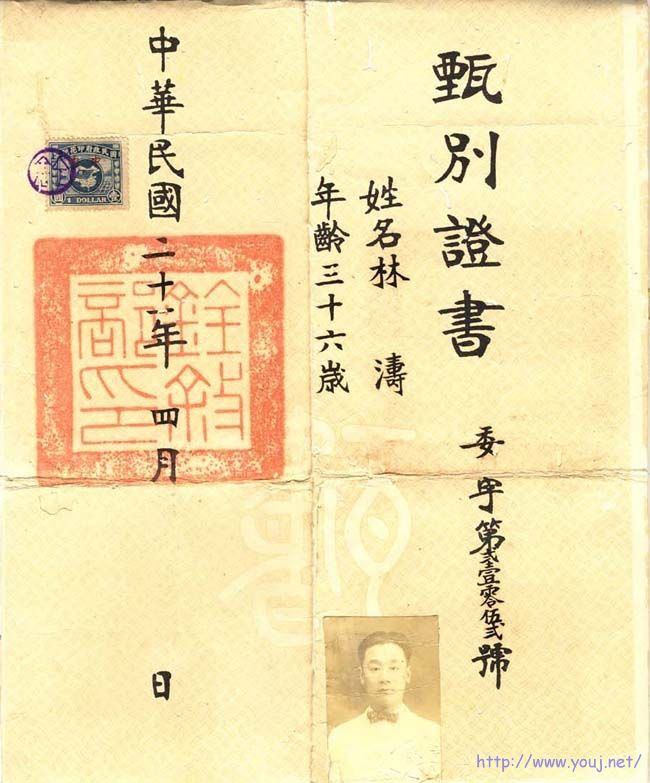 甄別證書
委字第弍壹零伍弍號
姓名林 濤
年齡三十六歲
中華民國二十一年 四月 日
國民政府印花
1 DOLLAR
http://www.youj.net/